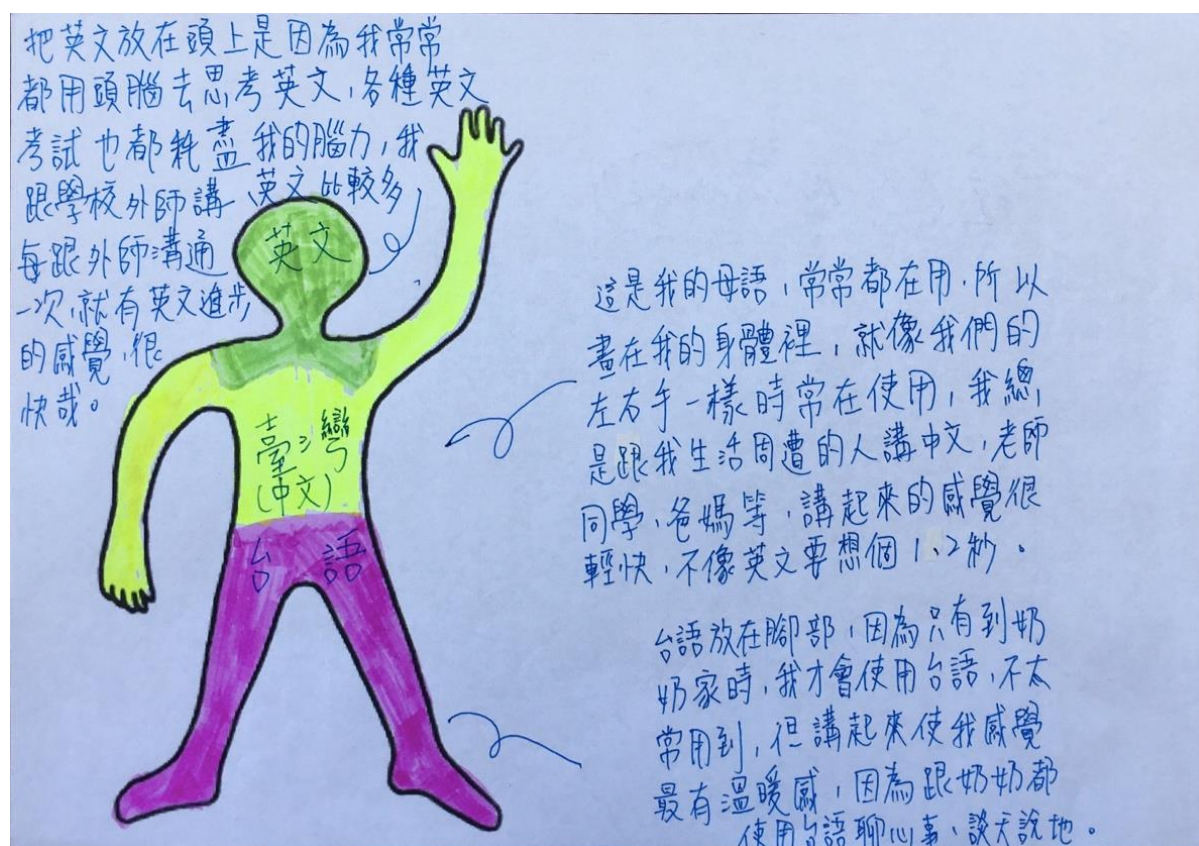 把英文放在頭上是因為我常常
都用頭腦去思考英文,各種英文
考試也都耗盡我的腦力,我
跟學校外師講英文比較多
每跟外師溝通
一次,就有英文進步
的感覺,很
快哉。
英文
臺灣
(中文)
台語
這是我的母語,常常都在用,所以
畫在我的身體裡,就像我們的
左右手一樣時常在使用,我總
是跟我生活周遭的人講中文,老師
同學、爸媽等,講起來的感覺很
輕快,不像英文要想個1、2秒。
台語放在腳部,因為只有到奶
奶家時,我才會使用台語,不太
常用到,但講起來使我感覺
最有溫暖感,因為跟奶奶都
使用台語聊心事、談天說地。